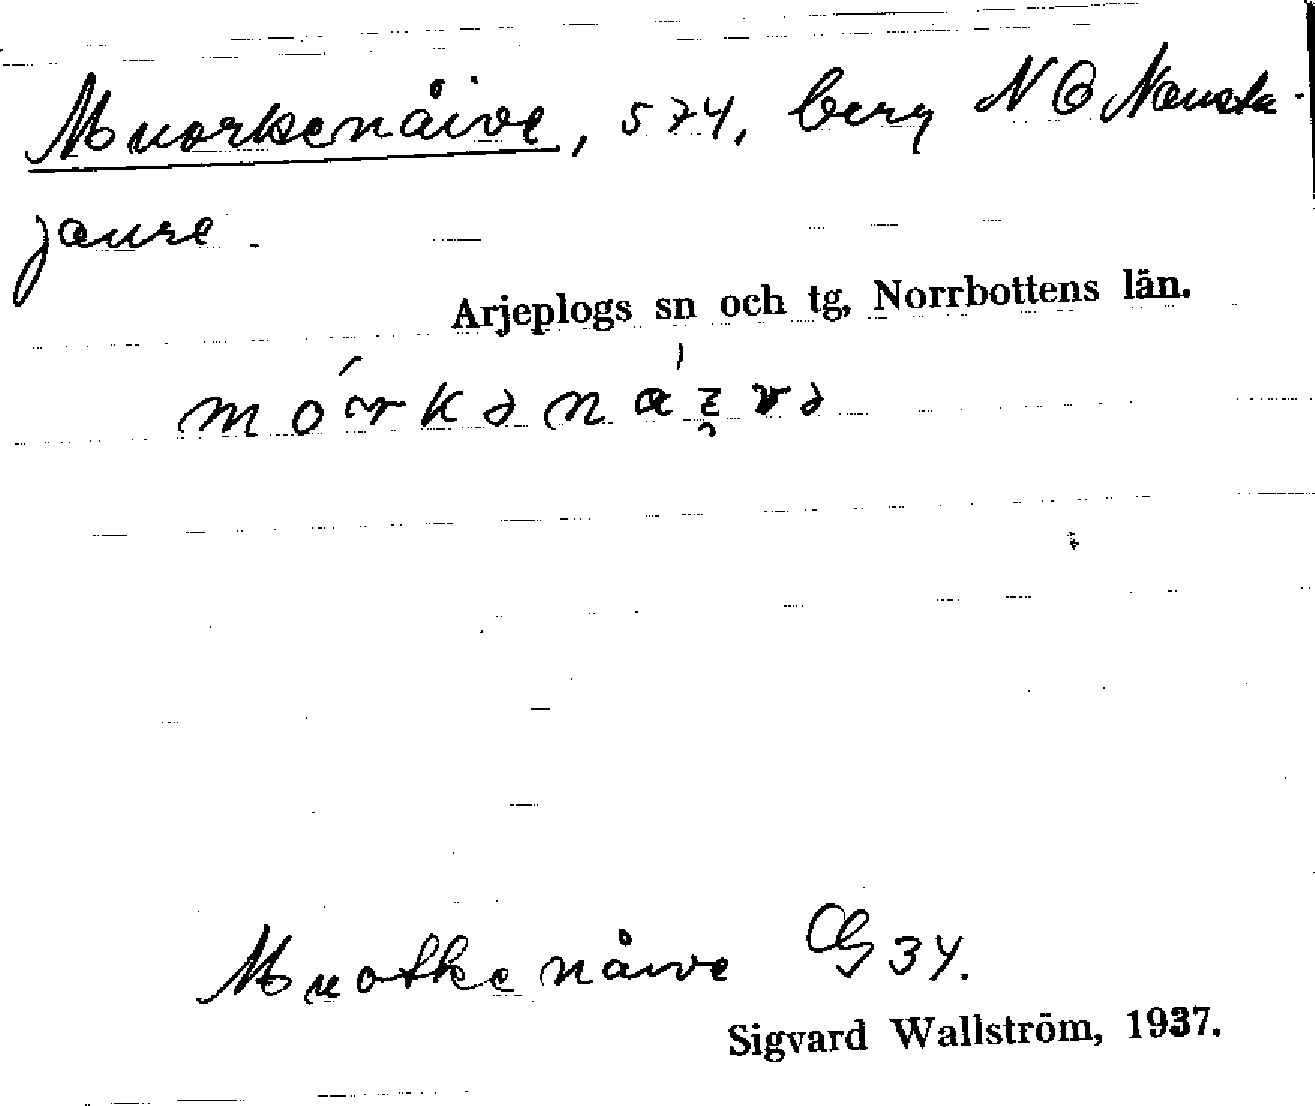 Muorkenåive, 574, berg NO Nausta-
jaure.
Arjeplogs sn och tg, Norrbottens län.
Muotkenåive G34.
Sigvard Wallström, 1937.